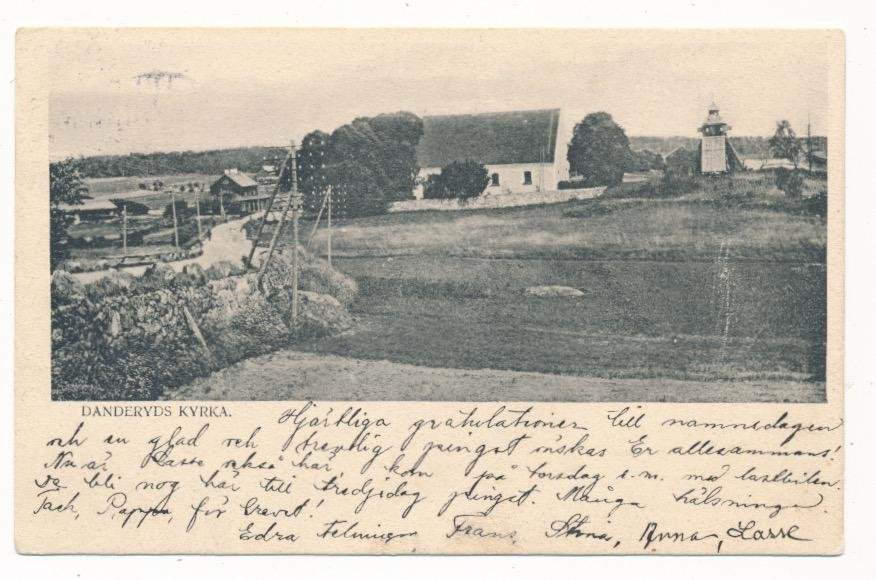 DANDERYDS KYRKA.
Hjärtliga gratulationer till namnsdagen
och en glad och trevlig pingst önskas Er allesammans!
Nu är Lasse också här, kom på torsdag e.m. med lastbilen.
De bli nog här till tredjedag pingst. Många hälsningar.
Tack, Pappa, för brevet!
Edra Frans, Stina, Anna, Lasse